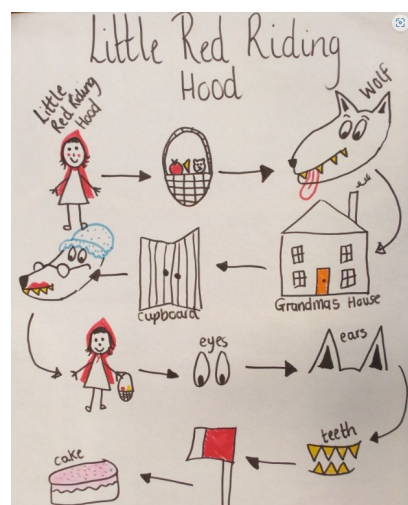 Little Red Riding
Hood
Little
Red Riding
Hood
Wolf
Grandmas House
Cupboard
eyes
ears
teeth
cake